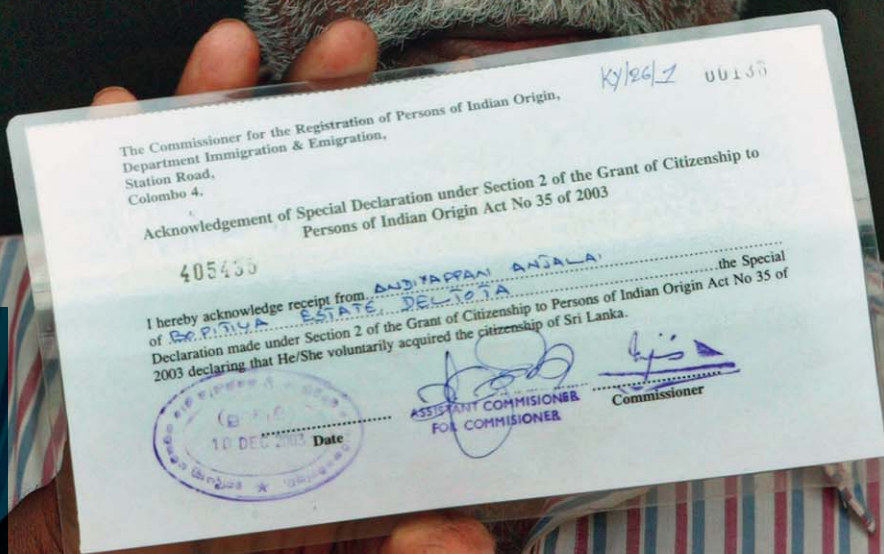 KY/26/1 00135
The Commissioner for the Registration of Persons of Indian Origin,
Department Immigration & Emigration,
Station Road,
Colombo 4.
Acknowledgement of Special Declaration under Section 2 of the Grant of Citizenship to
Persons of Indian Origin Act No 35 of 2003
405435
I hereby acknowledge receipt from ANDIYAPPAN ANJALAI
of BOPITIYA ESTATE, DELTOTA the Special
Declaration made under Section 2 of the Grant of Citizenship to Persons of Indian Origin Act No 35 of
2003 declaring that He/She voluntarily acquired the citizenship of Sri Lanka.
10 DEC 2003 Date
ASSISTANT COMMISIONER
FOR COMMISIONER
Commissioner